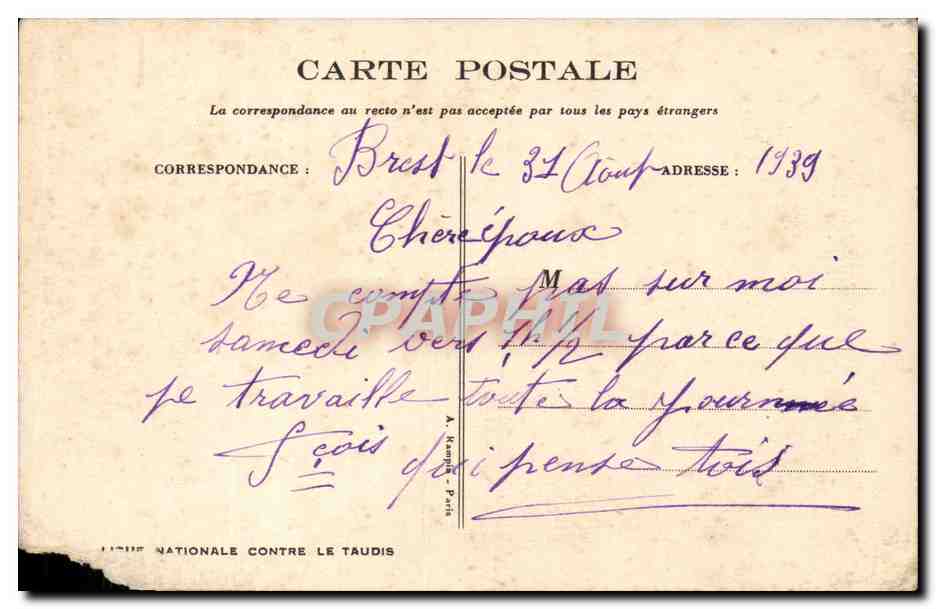 CARTE POSTALE
La correspondance au recto n'est pas acceptée par tous les pays étrangers
CORRESPONDANCE : Brest le 31 Aout ADRESSE : 1939
Chère époux
M
Ne compte pas sur moi
CPAPHIL
samedi vers 1h 1/2 parce que
je travaille toute la journée
Fçois qui pense tois
A. Rampin - Paris
LIGUE NATIONALE CONTRE LE TAUDIS